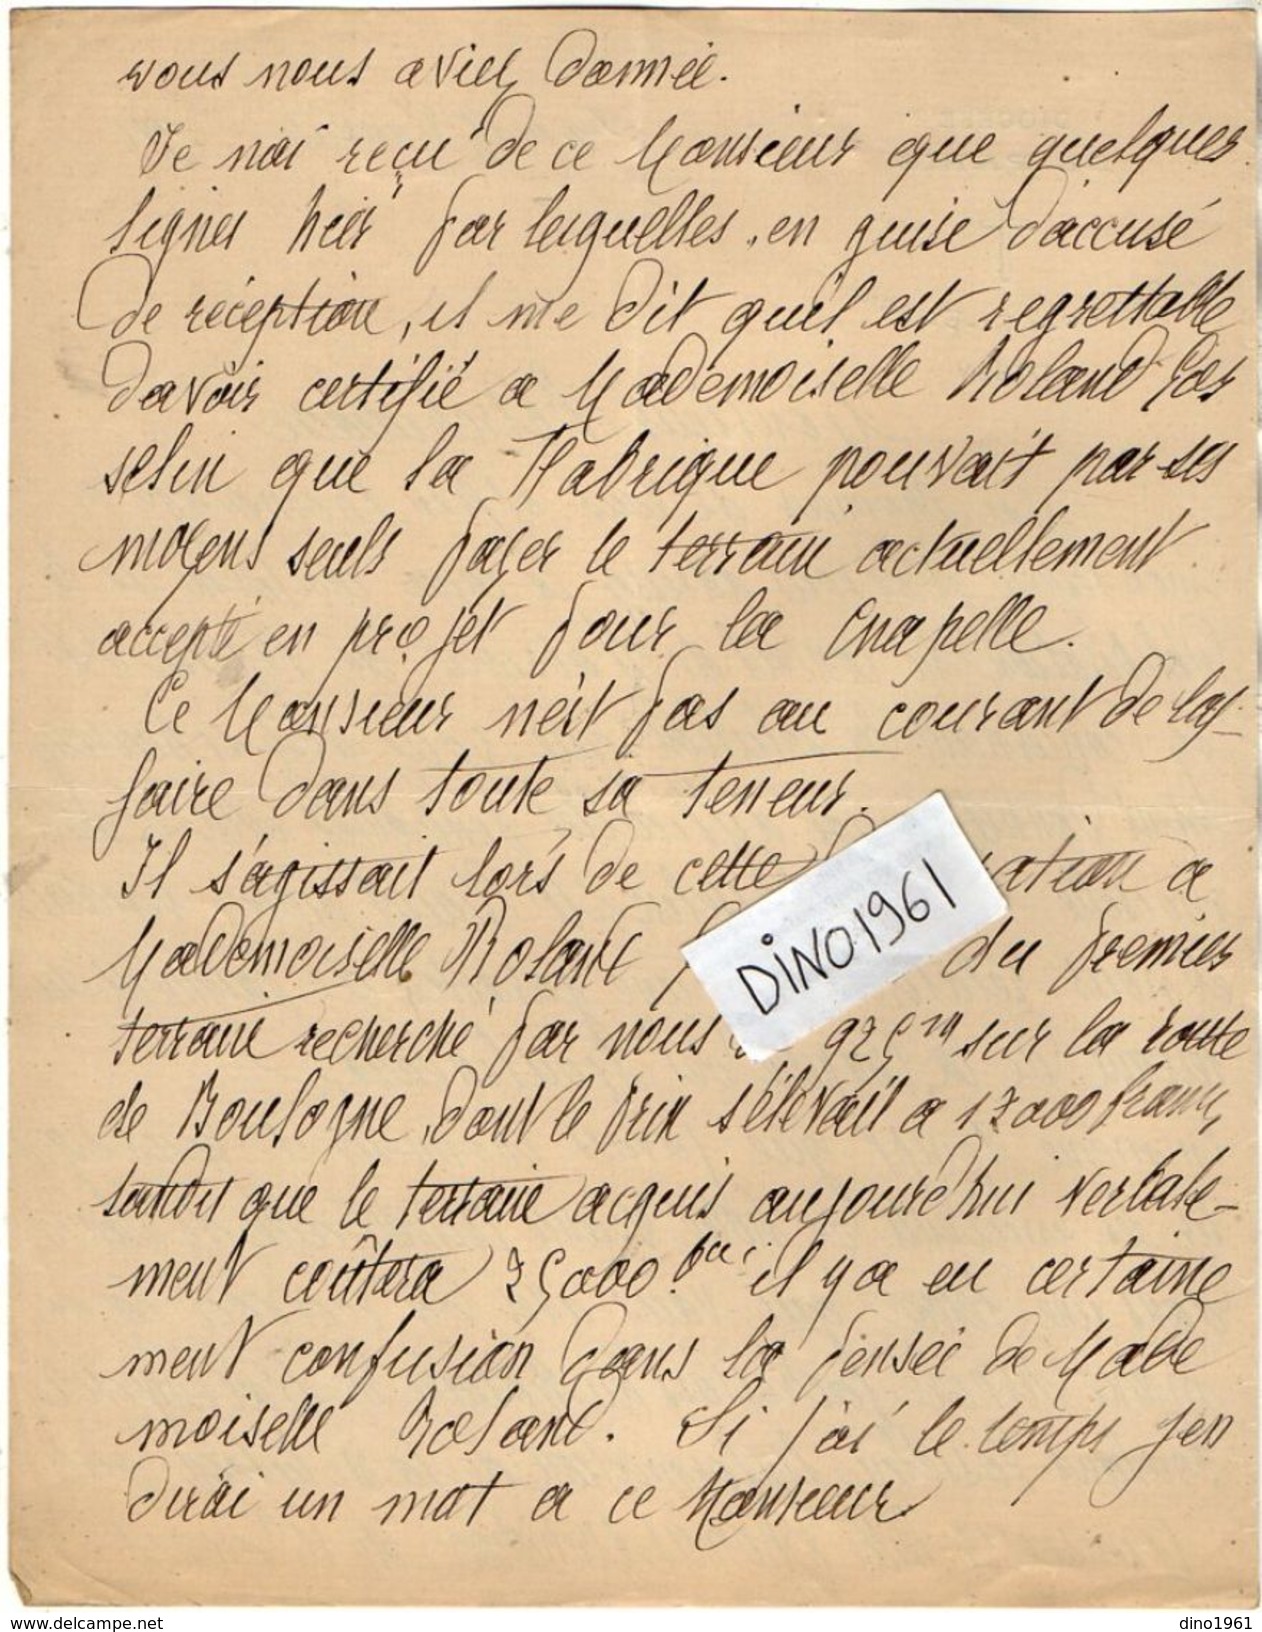 vous nous aviez donnée.
Je n'ai reçu de ce Monsieur que quelques
lignes hier par lesquelles, en guise d'accusé
de réception, il me dit qu'il est regrettable
d'avoir certifié a Mademoiselle Roland Gos
selin que la Fabrique pouvait par ses
moyens seuls payer le terrain actuellement
accepté en projet pour la Chapelle.
Ce Monsieur n'est pas au courant de l'af-
faire dans toute sa teneur.
Il s'agissait lors de cette ration a
Mademoiselle Roland du premier
terrain recherché par nous 925m sur la route
de Boulogne, dont le prix s'élevait a 12000 francs,
tandis que le terrain acquis aujourd'hui verbale-
ment coûtera 25000 frcs. il y a eu certaine
ment confusion dans la pensée de Made
moiselle Roland. Si j'ai le temps j'en
dirai un mot a ce Monsieur.
DINO1961
www.delcampe.net
dino1961